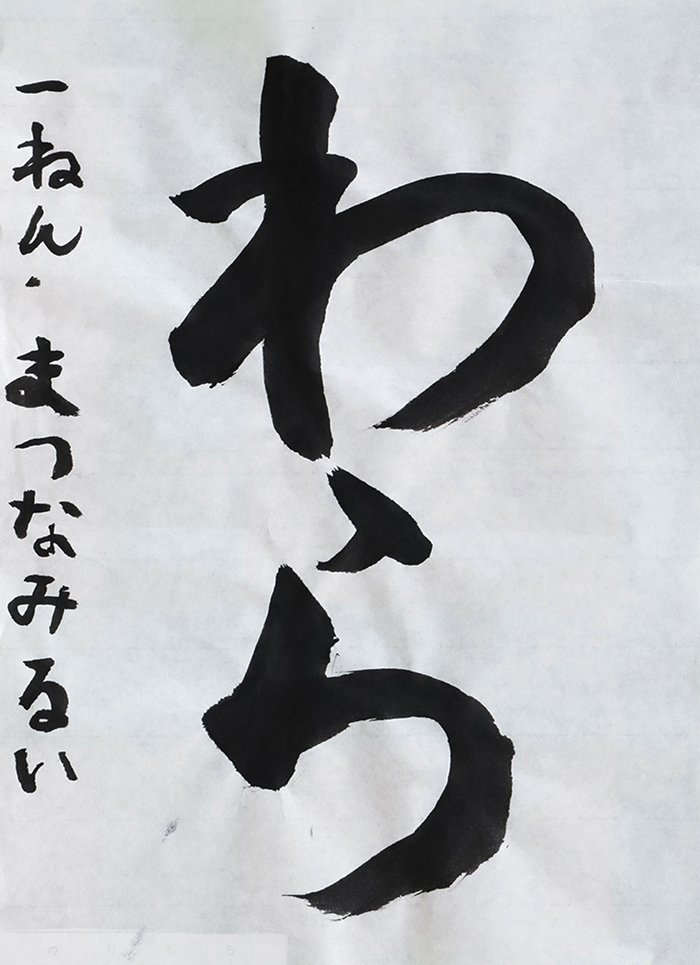 わら
一ねん・まつなみるい
のりしろ